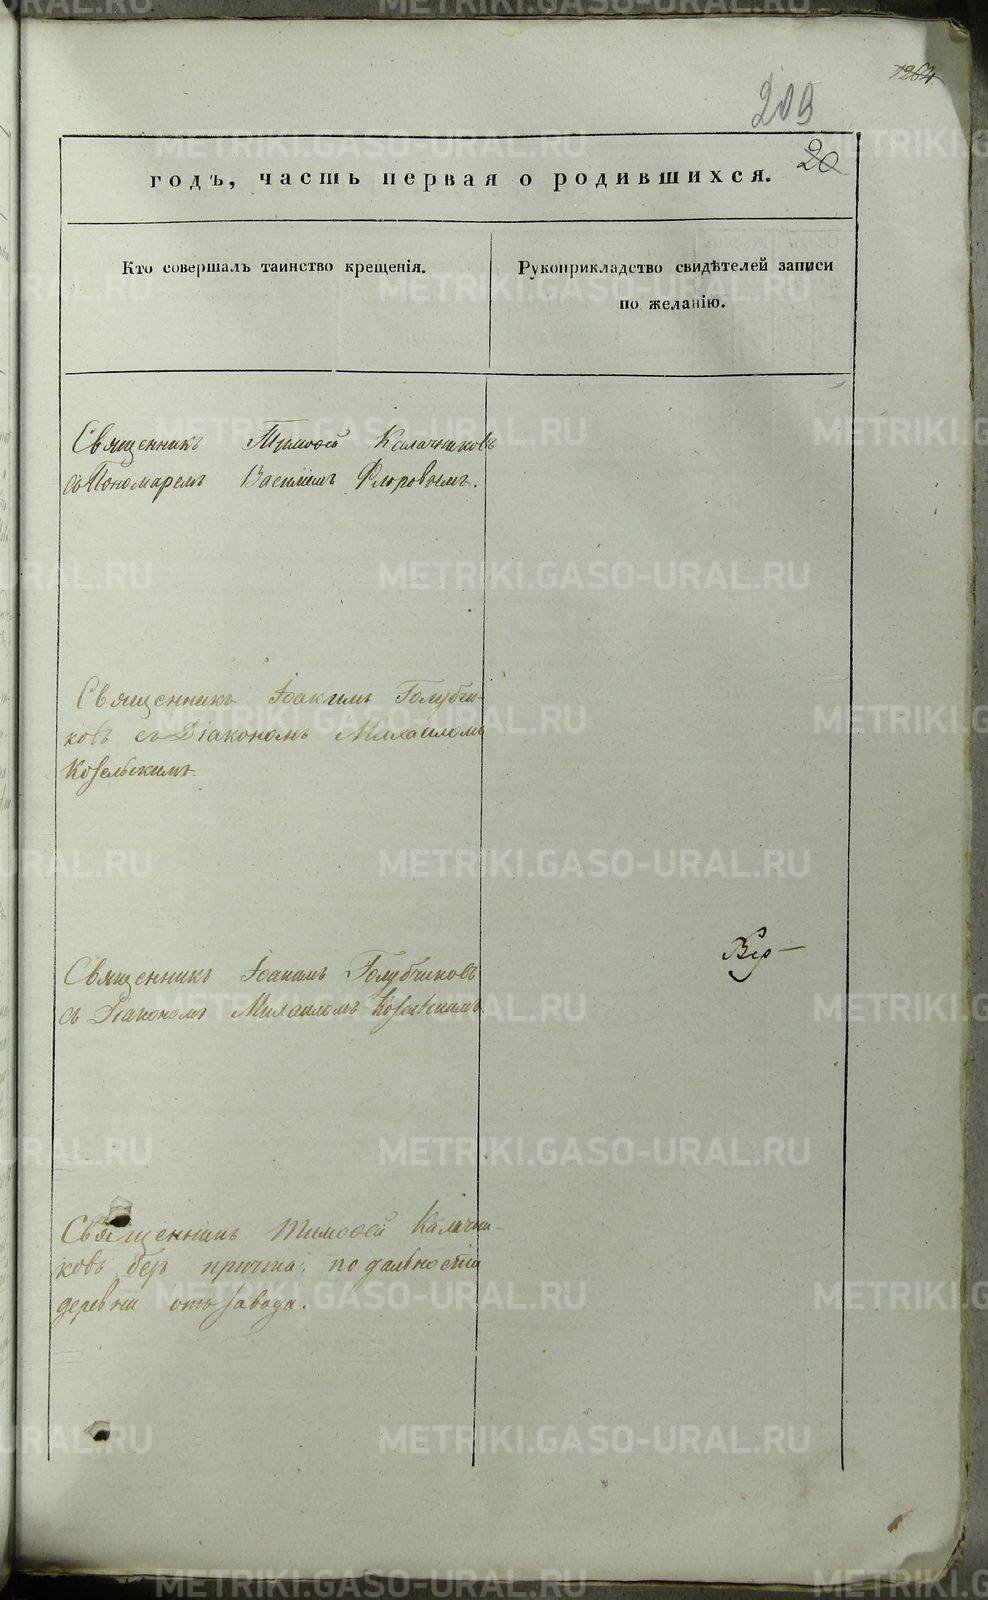 1264
209
20
годъ, часть первая о родившихся.
Кто совершалъ таинство крещенія.
Рукоприкладство свидѣтелей записи
по желанію.
Священникъ Тимоѳей Калачниковъ
съ Пономаремъ Василіемъ Флоровымъ.
Священникъ Іоакимъ Голубчи-
ковъ съ Діакономъ Михаиломъ
Козельскимъ.
Священникъ Іоакимъ Голубчиковъ
съ Діакономъ Михаиломъ Козельскимъ.
Священникъ Тимоѳей Калачни-
ковъ без причта, по дальности
деревни отъ завода.
METRIKI.GASO-URAL.RU